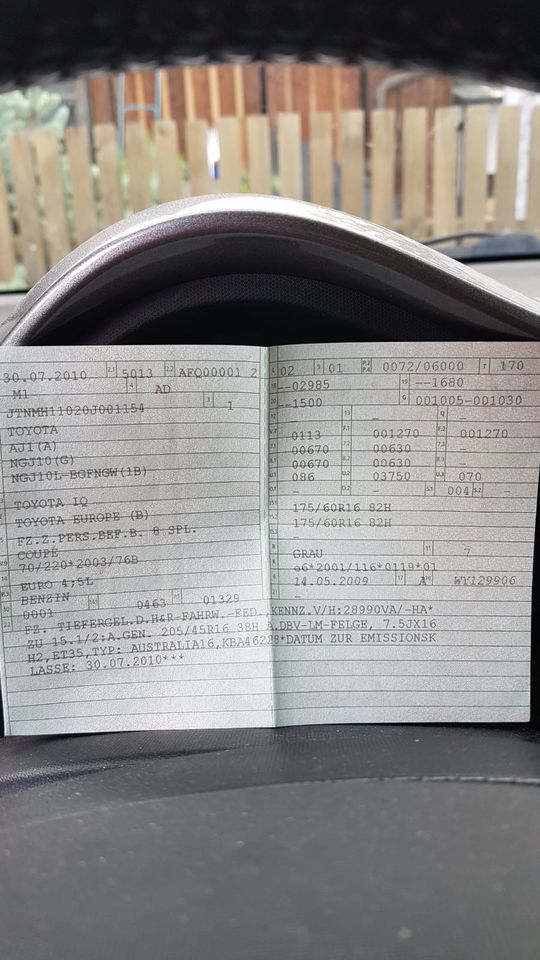 30.07.2010 2.1 5013 2.2 AFQ00001 2
M1 4 AD
JTNMH11020J001154 3 1
TOYOTA
AJ1(A)
NGJ10(G)
NGJ10L-BGFNGW(1B)
TOYOTA IQ
TOYOTA EUROPE (B)
FZ.Z.PERS.BEF.B. 8 SPL.
COUPÉ
70/220*2003/76B
EURO 4;5L
BENZIN
0001 0463 01329
L 02 9 01 P.2 P.4 0072/06000 T 170
18 --02985 19 --1680
20 --1500 G 001005-001030
12 - 13 - Q -
V.7 0113 F.1 001270 F.2 001270
7.1 00670 7.2 00630 7.3 -
8.1 00670 8.2 00630 8.3 -
U.1 086 U.2 03750 U.3 070
O.1 - O.2 - S.1 004 S.2
15.1 175/60R16 82H
15.2 175/60R16 82H
15.3 -
R GRAU 11 7
K e6*2001/116*0119*01
6 14.05.2009 17 A 16 WY129906
21 -
22 FZ. TIEFERGEL.D.H&R-FAHRW.-FED.,KENNZ.V/H:28990VA/-HA*
ZU 15.1/2:A.GEN. 205/45R16 38H A.DBV-LM-FELGE, 7.5JX16
H2,ET35,TYP: AUSTRALIA16,KBA46228*DATUM ZUR EMISSIONSK
LASSE: 30.07.2010***